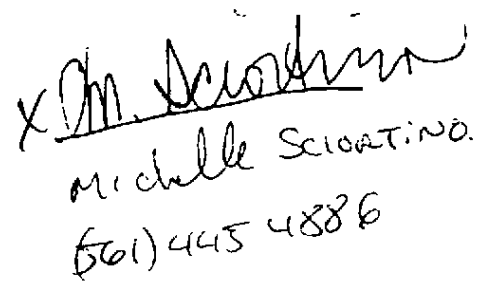 x Dm. Sciortino
Michelle SCIORTINO.
(561) 445 4886